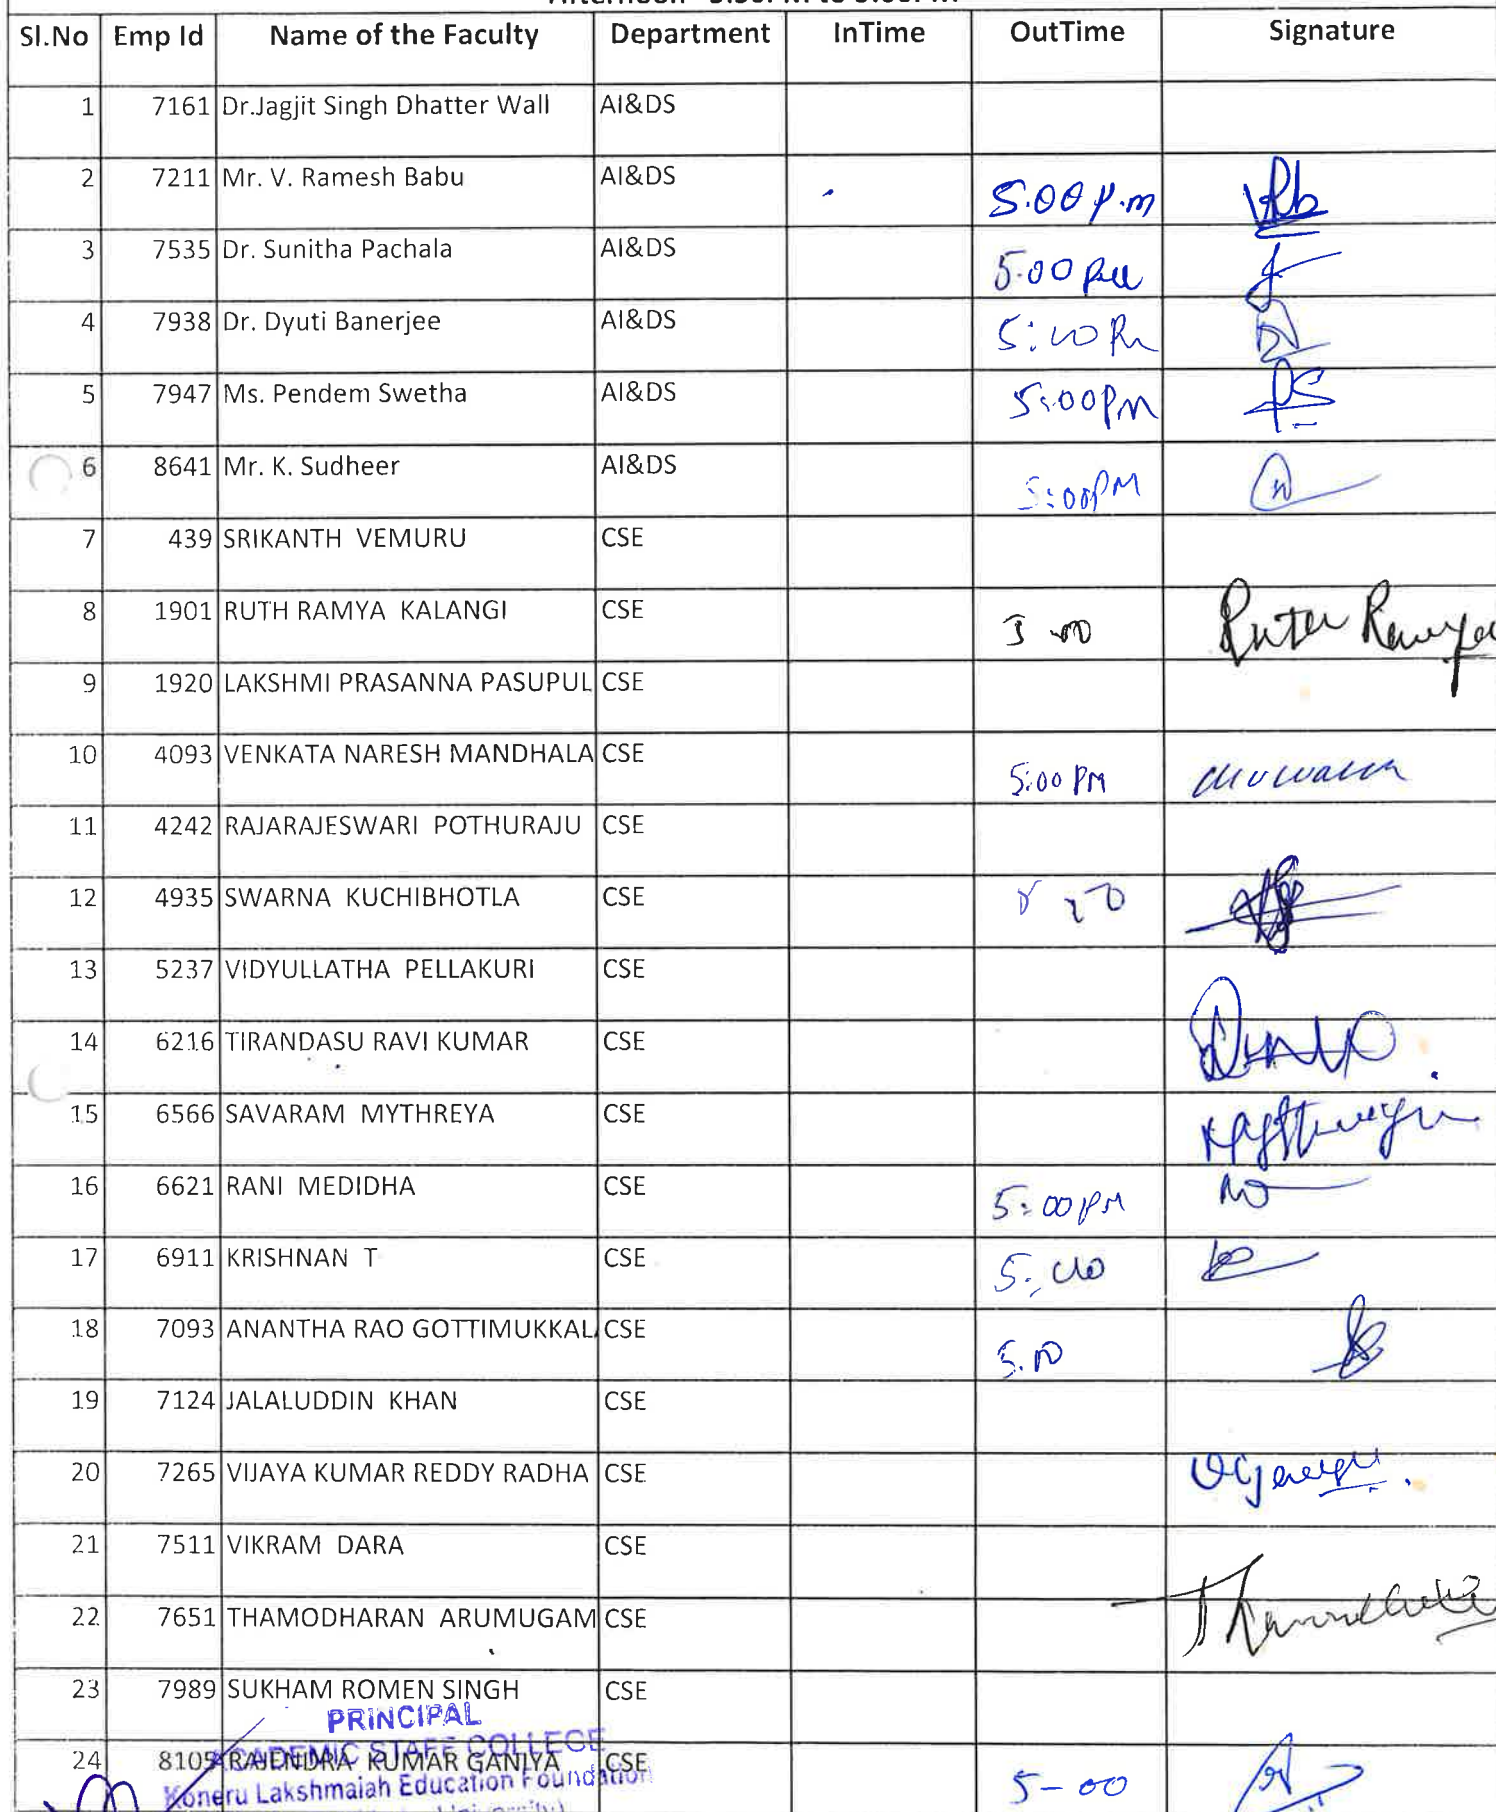 Sl.No Emp Id Name of the Faculty Department InTime OutTime Signature
1 7161 Dr.Jagjit Singh Dhatter Wall AI&DS
2 7211 Mr. V. Ramesh Babu AI&DS 5.00 p.m
3 7535 Dr. Sunitha Pachala AI&DS 5.00 pm
4 7938 Dr. Dyuti Banerjee AI&DS
5 7947 Ms. Pendem Swetha AI&DS 5:00PM PS
6 8641 Mr. K. Sudheer AI&DS 5:00PM
7 439 SRIKANTH VEMURU CSE
8 1901 RUTH RAMYA KALANGI CSE Ruth Ramya
9 1920 LAKSHMI PRASANNA PASUPUL CSE
10 4093 VENKATA NARESH MANDHALA CSE 5:00 PM
11 4242 RAJARAJESWARI POTHURAJU CSE
12 4935 SWARNA KUCHIBHOTLA CSE
13 5237 VIDYULLATHA PELLAKURI CSE
14 6216 TIRANDASU RAVI KUMAR CSE
15 6566 SAVARAM MYTHREYA CSE
16 6621 RANI MEDIDHA CSE 5:00PM
17 6911 KRISHNAN T CSE
18 7093 ANANTHA RAO GOTTIMUKKAL CSE
19 7124 JALALUDDIN KHAN CSE
20 7265 VIJAYA KUMAR REDDY RADHA CSE
21 7511 VIKRAM DARA CSE
22 7651 THAMODHARAN ARUMUGAM CSE
23 7989 SUKHAM ROMEN SINGH CSE
PRINCIPAL
ACADEMIC STAFF COLLEGE
24 8105 RAJENDRA KUMAR GANIYA CSE 5-00
Koneru Lakshmaiah Education Foundation